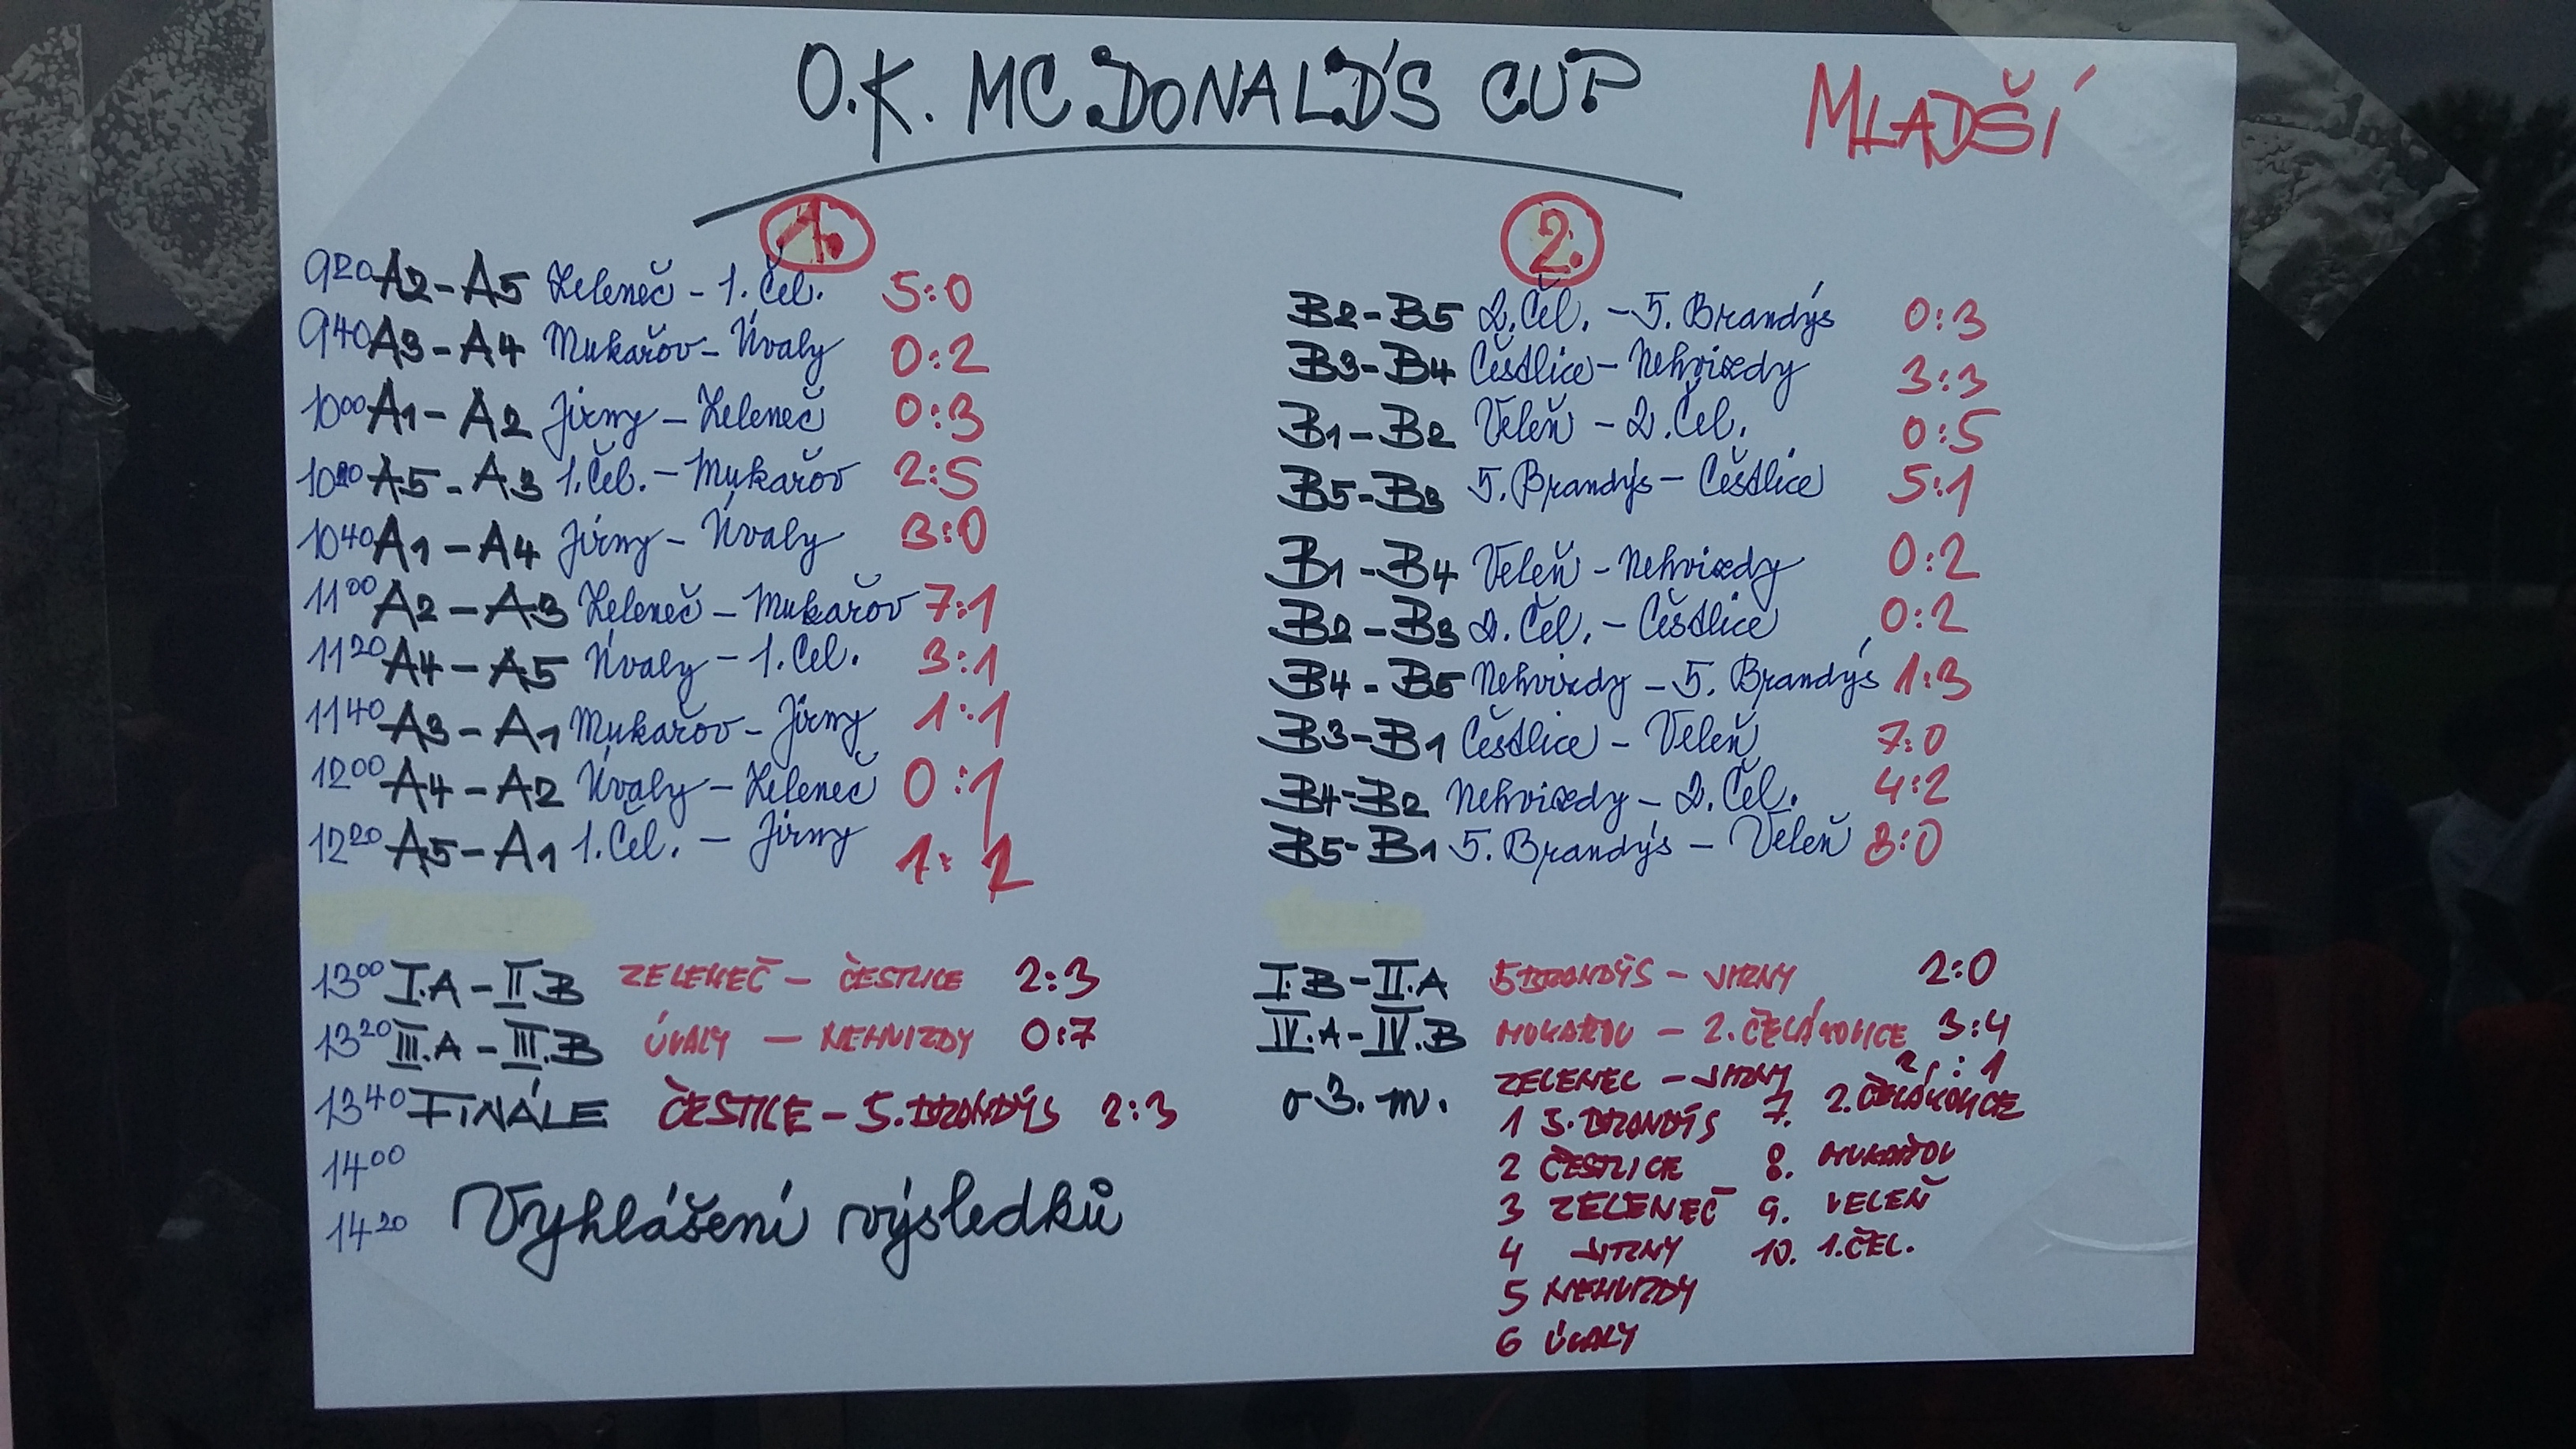 O.K. MC DONALD'S CUP
MLADŠÍ
1.
9 20 A2 - A5 Zeleneč - 1. Čel. 5:0
9 40 A3 - A4 Mukařov - Úvaly 0:2
10 00 A1 - A2 Jirny - Zeleneč 0:3
10 20 A5 - A3 1. Čel. - Mukařov 2:5
10 40 A1 - A4 Jirny - Úvaly 3:0
11 00 A2 - A3 Zeleneč - Mukařov 7:1
11 20 A4 - A5 Úvaly - 1. Čel. 3:1
11 40 A3 - A1 Mukařov - Jirny 1:1
12 00 A4 - A2 Úvaly - Zeleneč 0:1
12 20 A5 - A1 1. Čel. - Jirny 1:2
2.
B2 - B5 2. Čel. - 5. Brandýs 0:3
B3 - B4 Čéstlice - Nehvizdy 3:3
B1 - B2 Veleň - 2. Čel. 0:5
B5 - B3 5. Brandýs - Čestlice 5:1
B1 - B4 Veleň - Nehvizdy 0:2
B2 - B3 2. Čel. - Čestlice 0:2
B4 - B5 Nehvizdy - 5. Brandýs 1:3
B3 - B1 Čestlice - Veleň 7:0
B4 - B2 Nehvizdy - 2. Čel. 4:2
B5 - B1 5. Brandýs - Veleň 8:0
13 00 I.A - II.B ZELENEČ - ČESTLICE 2:3
13 20 III.A - III.B ÚVALY - NEHVIZDY 0:7
13 40 FINÁLE ČESTICE - 5. BRANDÝS 2:3
14 00
14 20 Vyhlášení výsledků
I.B - II.A 5 BRANDÝS - JIRNY 2:0
IV.A - IV.B MUKAŘOV - 2. ČELÁKOVICE 3:4
o 3. m. ZELENEC - JIRNY 2:1
1 5. BRANDÝS
2 ČESTLICE
3 ZELENEČ
4 JIRNY
5 NEHVIZDY
6 ÚVALY
7. 2. ČELÁKOVICE
8. MUKAŘOV
9. VELEŇ
10. 1. ČEL.